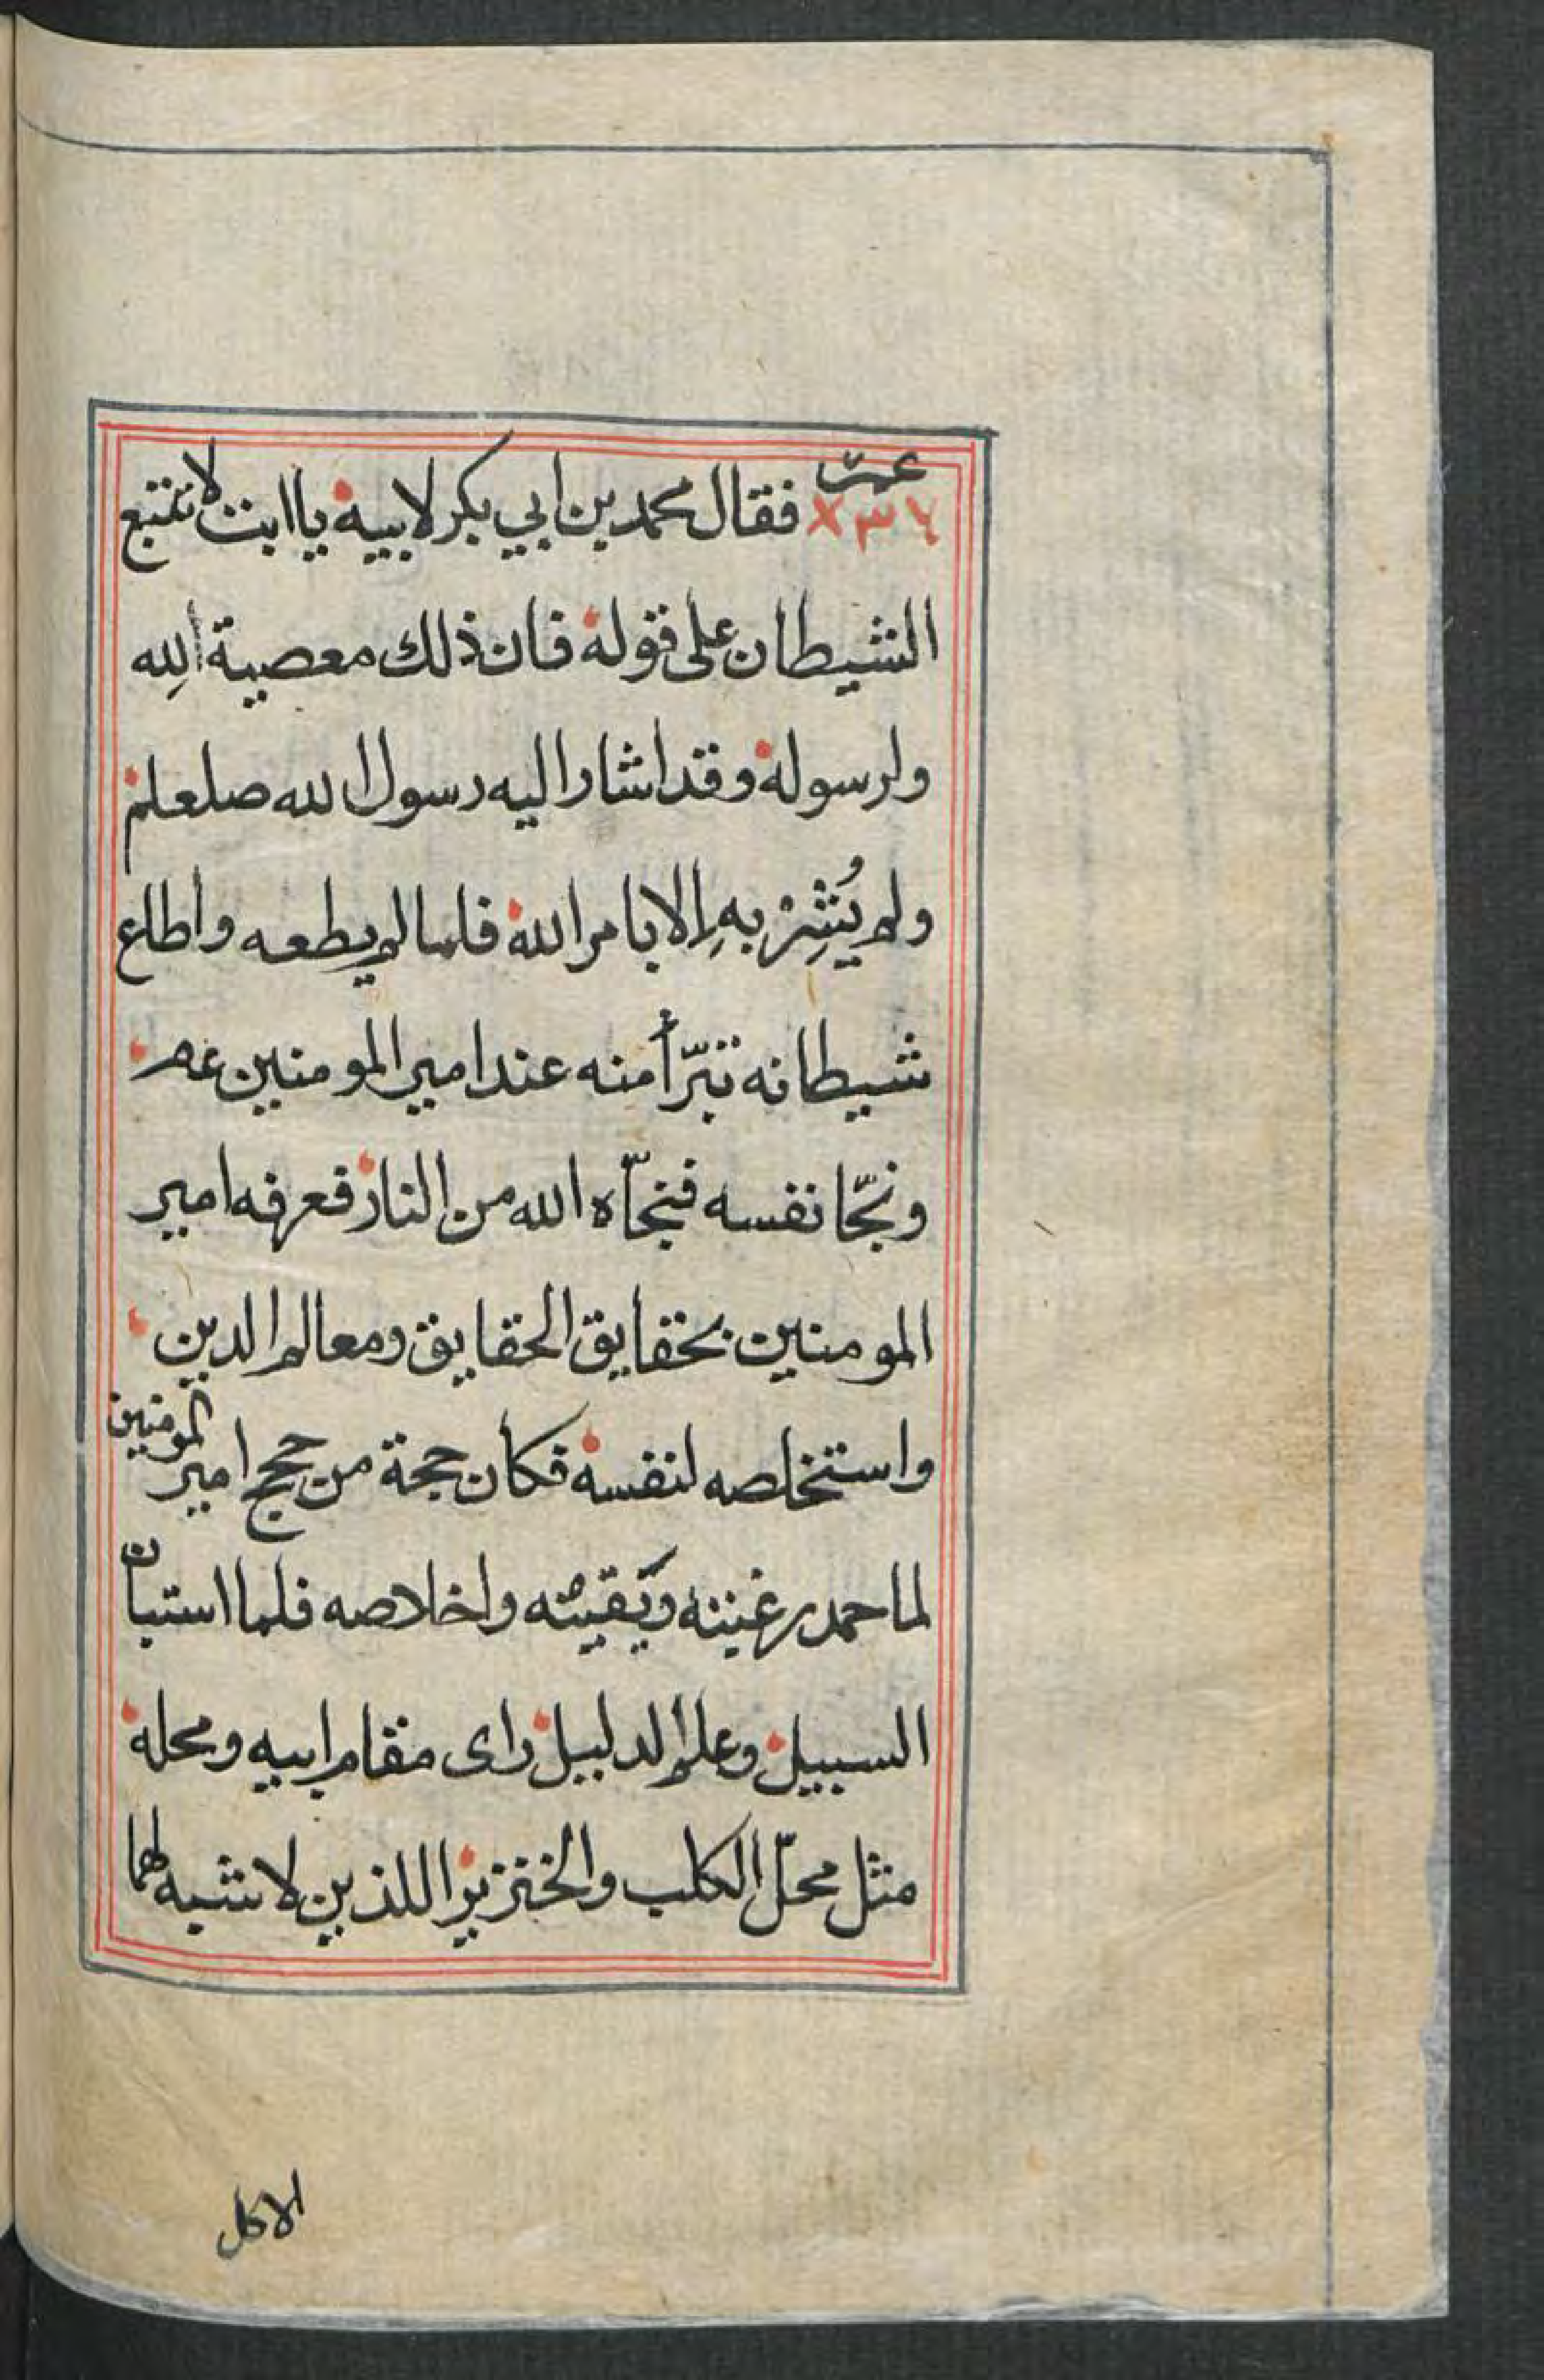 فقال محمد بن ابي بكر لابيه يا ابت لا تتبع
الشيطان على قوله فان ذلك معصية لله
ولرسوله وقد اشار اليه رسول الله صلعلم
ولم يُشِرْ بهِ الا بامر الله فلما لم يطعه واطاع
شيطانه تبرّأ منه عند امير المومنين عم
ونجّا نفسه فنجّاه الله من النار فعرفه امير
المومنين بحقايق الحقايق ومعالم الدين
واستخلصه لنفسه فكان حجة من حجج امير المومنين
لما حمد واخلاصه فلما استبان
السبيل وعلم الدليل راى مقام ابيه ومحله
مثل محلّ الكلب والخنزير اللذين لا شبه لهما
الاكل